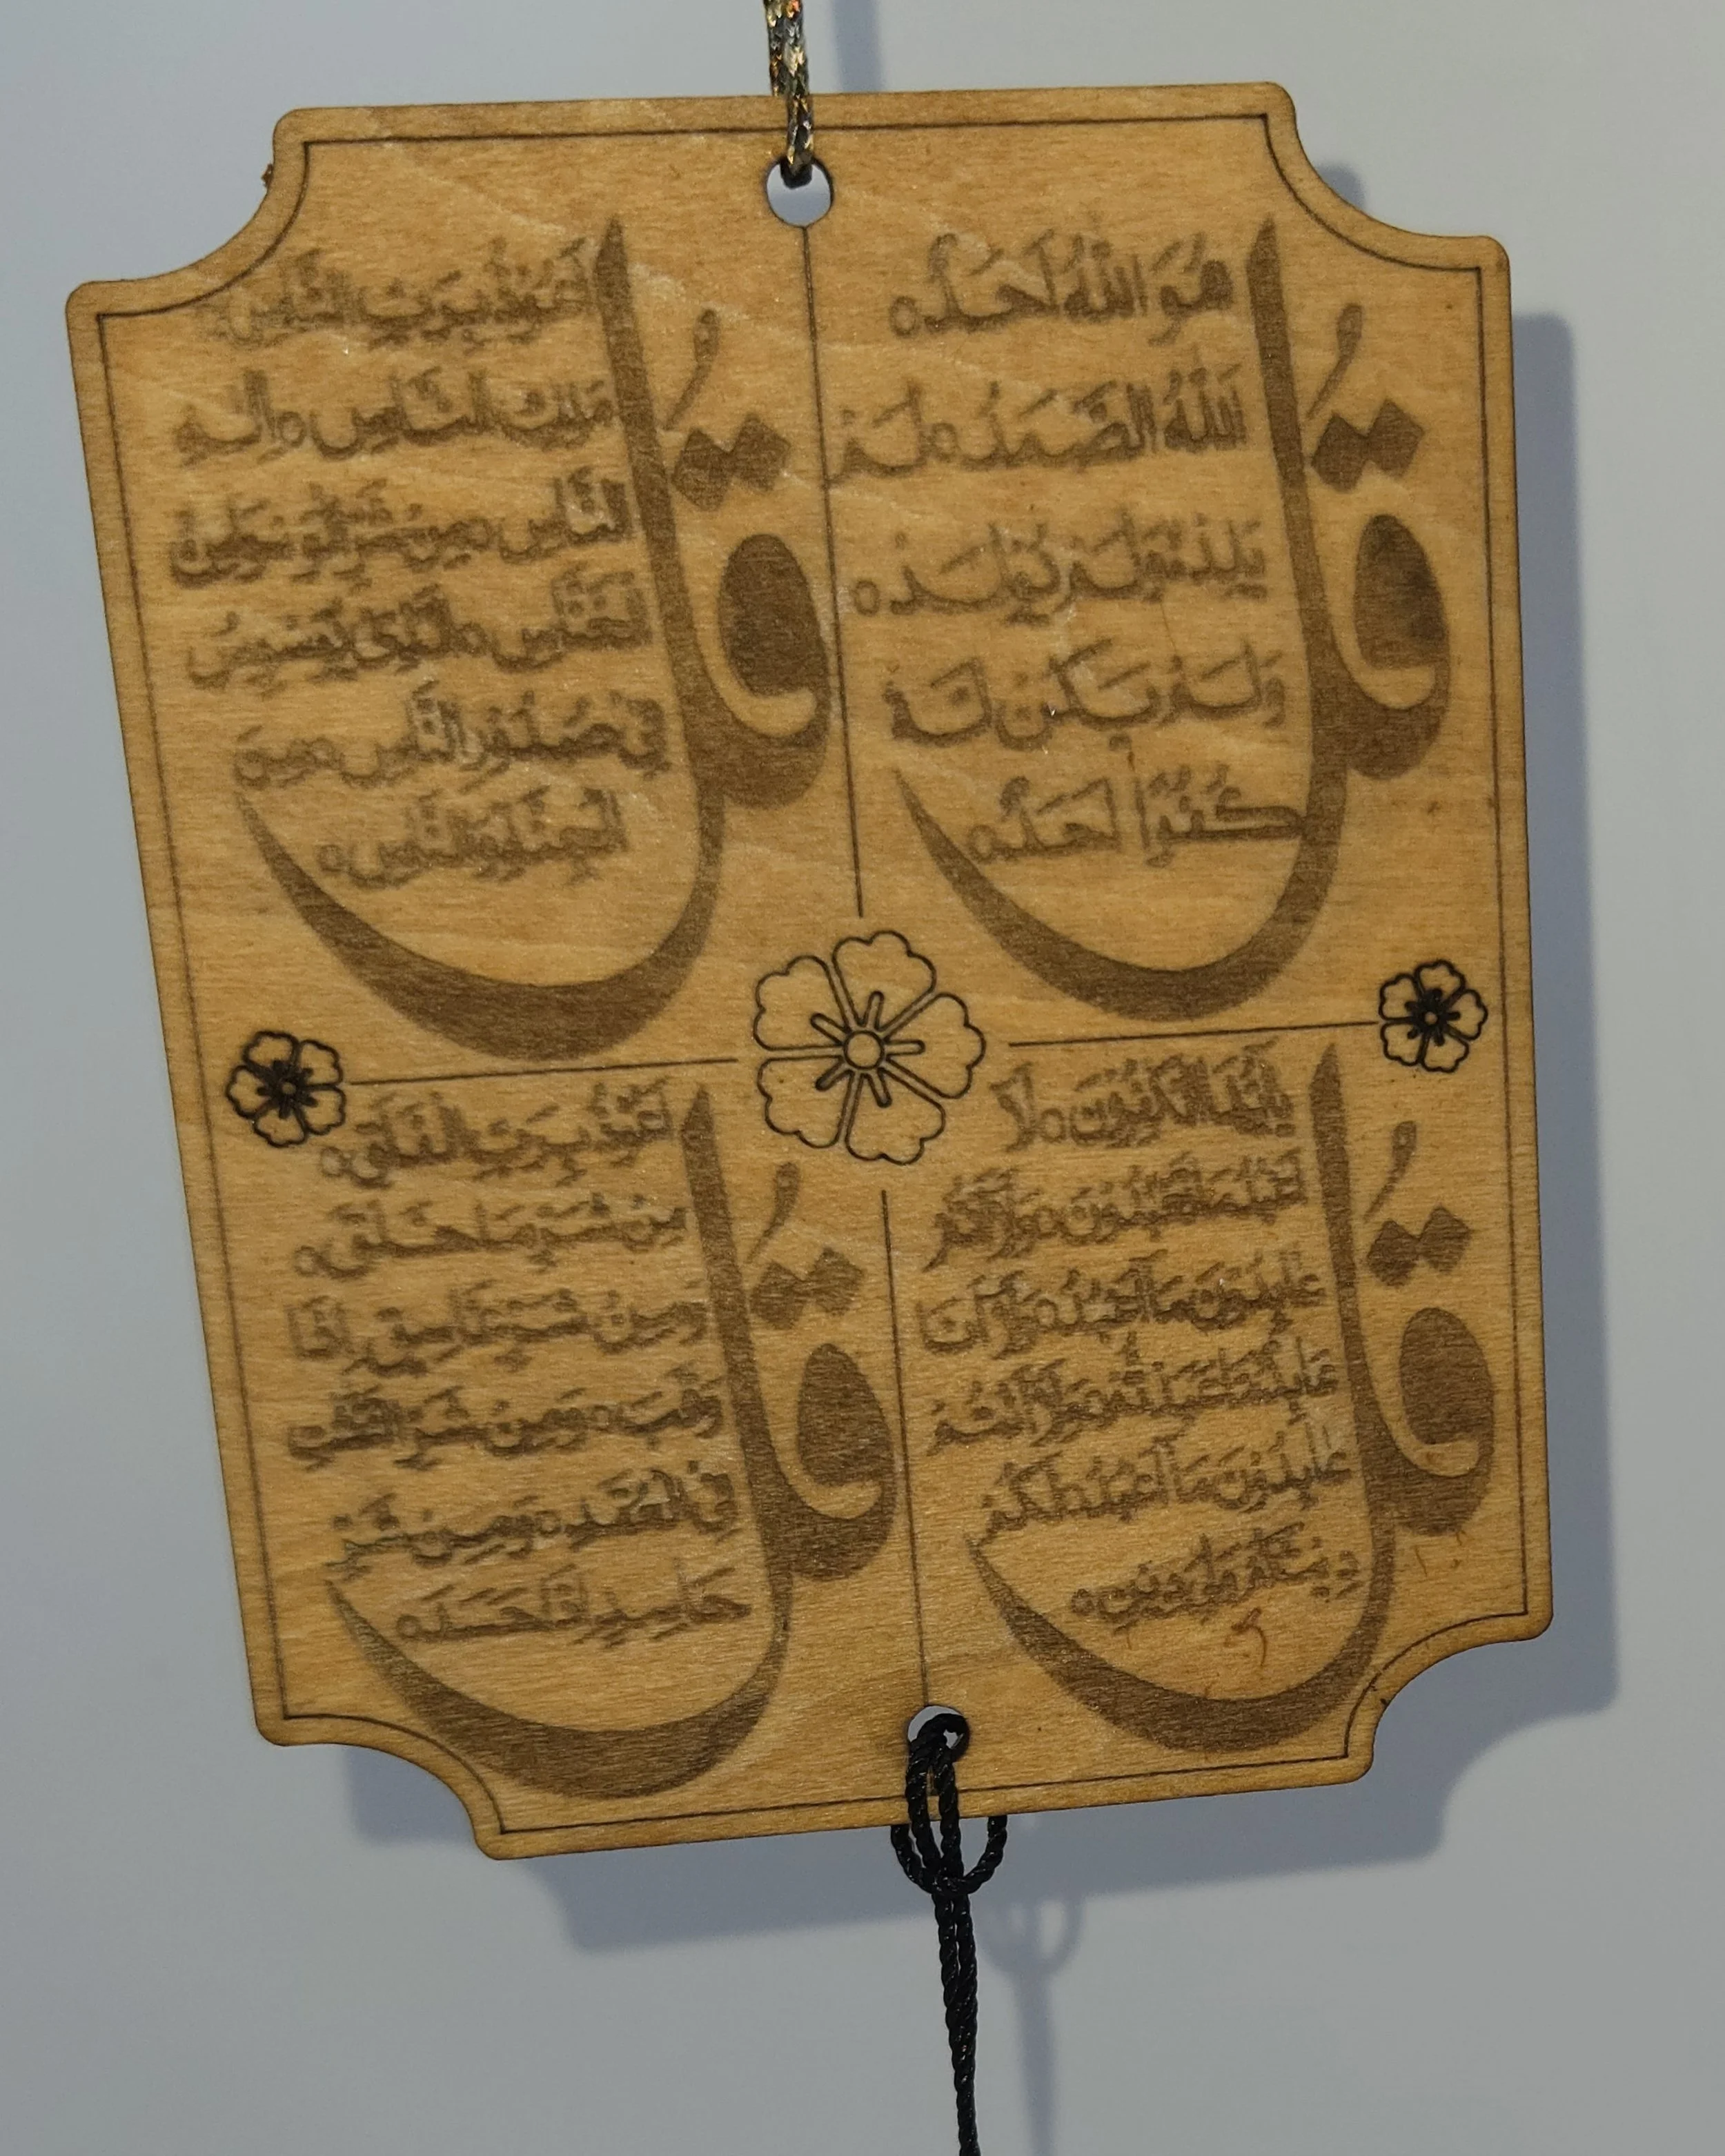 قُلْ
هُوَ اللّٰهُ اَحَدٌ ه
اَللّٰهُ الصَّمَدُ ه لَمْ
يَلِدْ ه وَلَمْ يُولَدْ ه
وَلَمْ يَكُنْ لَهُ
كُفُوًا اَحَدٌ ه
قُلْ
اَعُوذُ بِرَبِّ النَّاسِ ه
مَلِكِ النَّاسِ ه اِلٰهِ
النَّاسِ ه مِنْ شَرِّ الْوَسْوَاسِ
الْخَنَّاسِ ه الَّذِى يُوَسْوِسُ
فِى صُدُورِ النَّاسِ ه مِنَ
الْجِنَّةِ وَالنَّاسِ ه
قُلْ
يَا اَيُّهَا الْكَافِرُونَ ه لَا
اَعْبُدُ مَا تَعْبُدُونَ ه وَلَا اَنْتُمْ
عَابِدُونَ مَا اَعْبُدُ ه وَلَا اَنَا
عَابِدٌ مَا عَبَدْتُمْ ه وَلَا اَنْتُمْ
عَابِدُونَ مَا اَعْبُدُ ه لَكُمْ
دِينُكُمْ وَلِىَ دِينِ ه
قُلْ
اَعُوذُ بِرَبِّ الْفَلَقِ ه
مِنْ شَرِّ مَا خَلَقَ ه
وَمِنْ شَرِّ غَاسِقٍ اِذَا
وَقَبَ ه وَمِنْ شَرِّ النَّفَّاثَاتِ
فِى الْعُقَدِ ه وَمِنْ شَرِّ
حَاسِدٍ اِذَا حَسَدَ ه